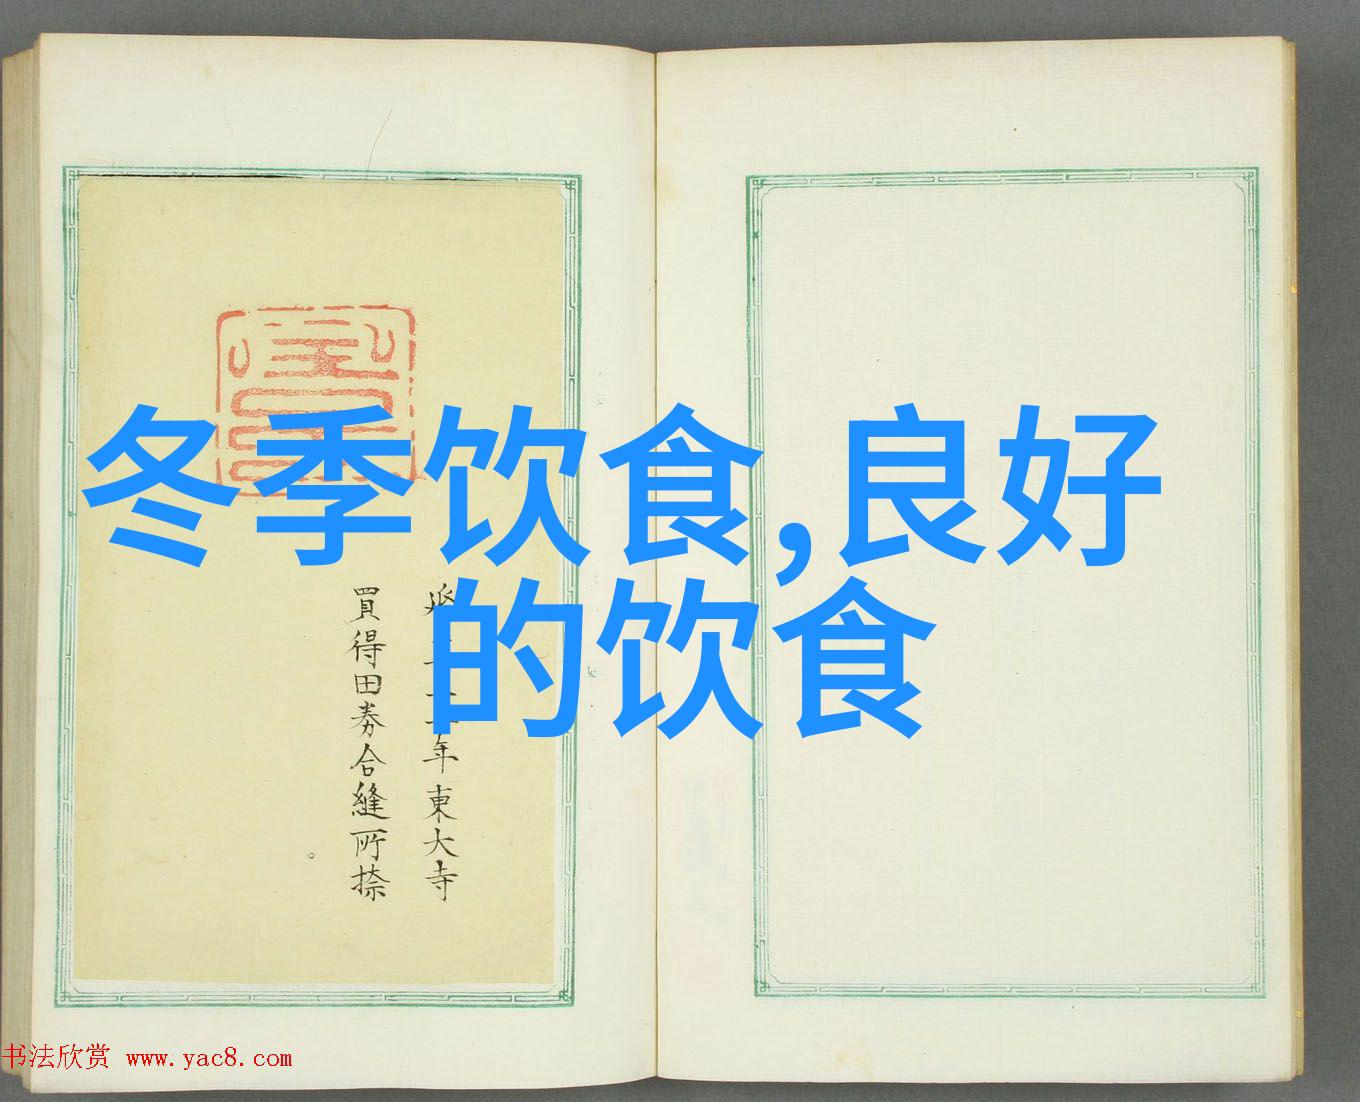 冬季饮食,良好
的饮食
年東大寺
買得田券合縫所捺
书法欣赏 www.yac8.com